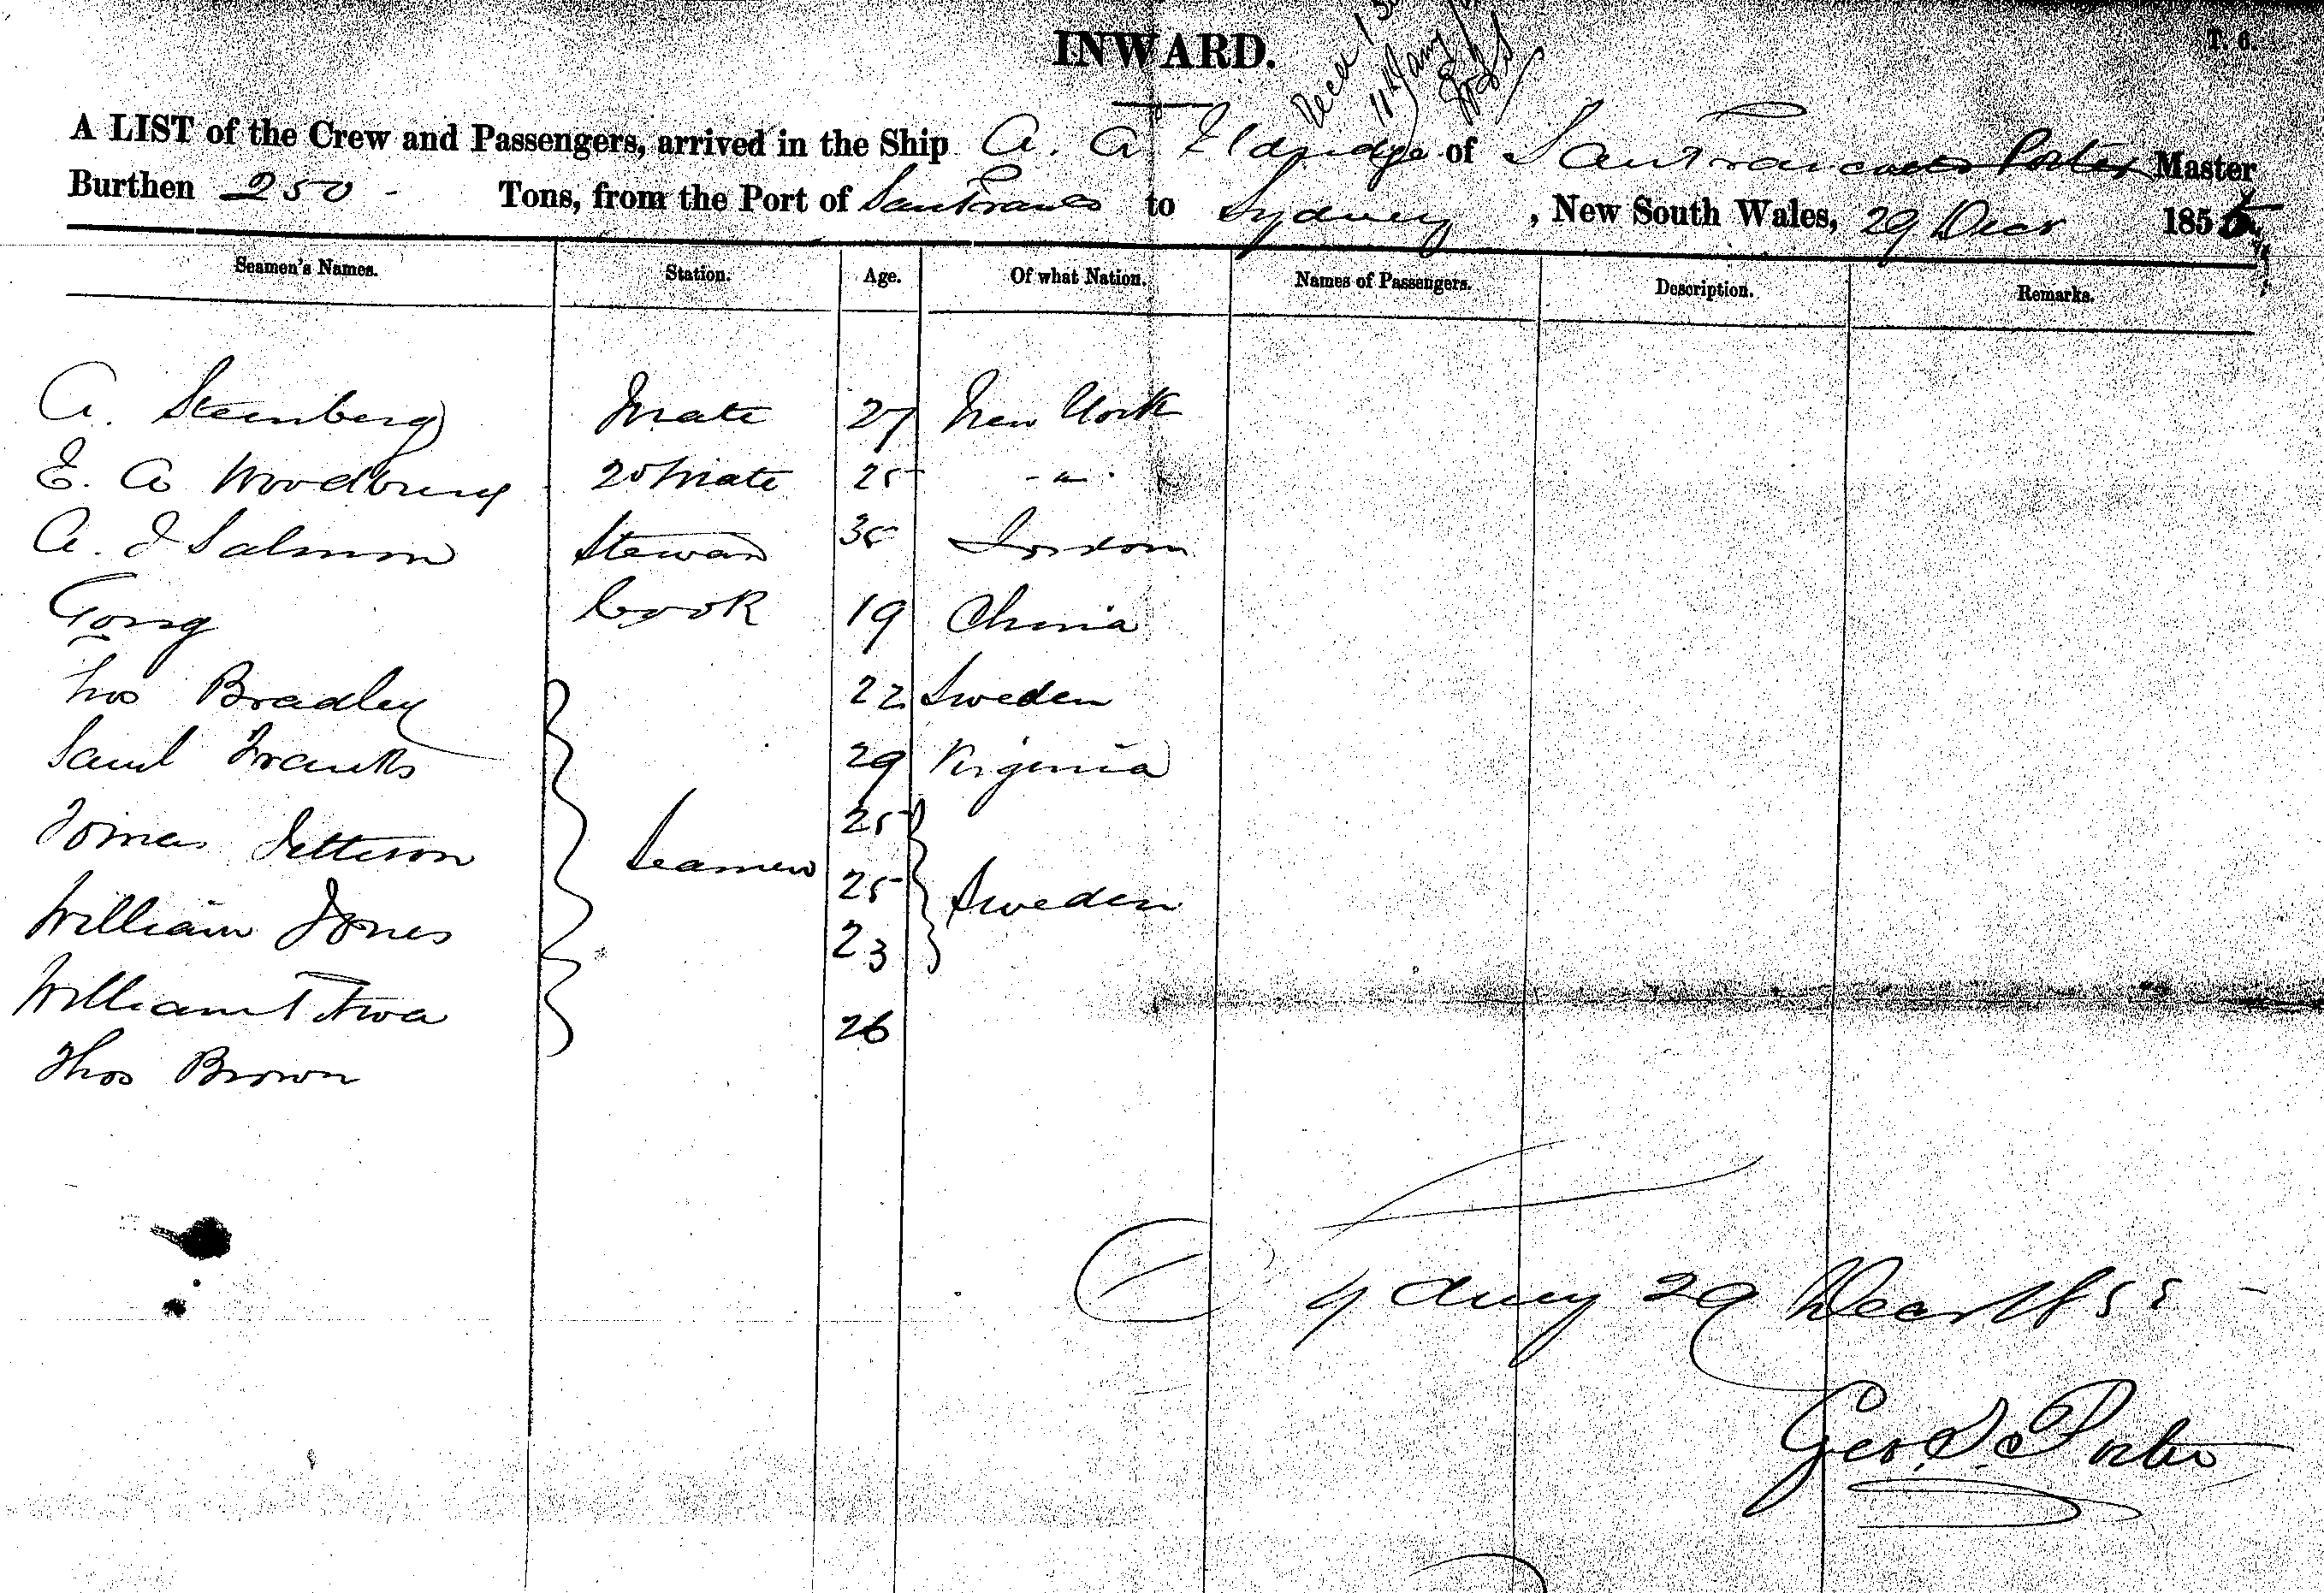 INWARD.
T. 6.
A LIST of the Crew and Passengers, arrived in the Ship A. A Eldridge of San Francisco Porter Master
Burthen 250 - Tons, from the Port of San Franco to Sydney, New South Wales, 29 Decr 1855
Seamen's Names. Station. Age. Of what Nation. Names of Passengers. Description. Remarks.
A. Steinberg Mate 27 New York
E. A Woodbury 2d Mate 25 - " -
A. J Salmon Steward 35 London
Gong Cook 19 China
Thos Bradley 22 Sweden
Saml Franks 29 Virginia
Tomas 25
Seamen
William Jones 25 Sweden
23
William
26
Thos Brown
Sydney 29 Decr 1855 -
Geo. S. Porter